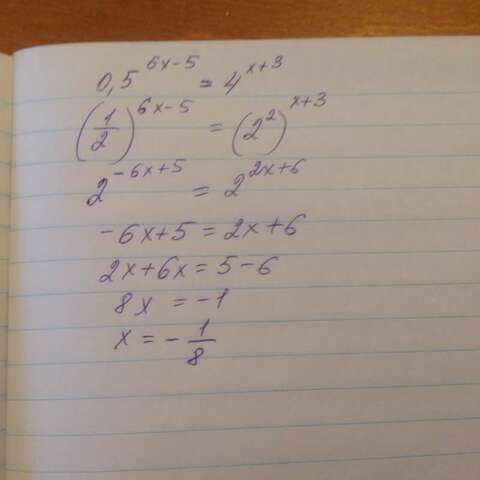 0,5^{6x-5} = 4^{x+3}
(1/2)^{6x-5} = (2^2)^{x+3}
2^{-6x+5} = 2^{2x+6}
-6x+5 = 2x+6
2x+6x = 5-6
8x = -1
x = -1/8